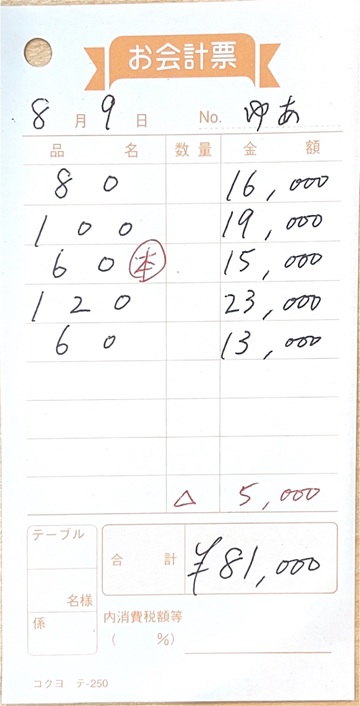 お会計票
8月9日 No. ゆあ
品名 数量 金額
80 16,000
100 19,000
60 本 15,000
120 23,000
60 13,000
△ 5,000
テーブル
名様
係
合計 ¥81,000
内消費税額等
( %)
コクヨ テ-250